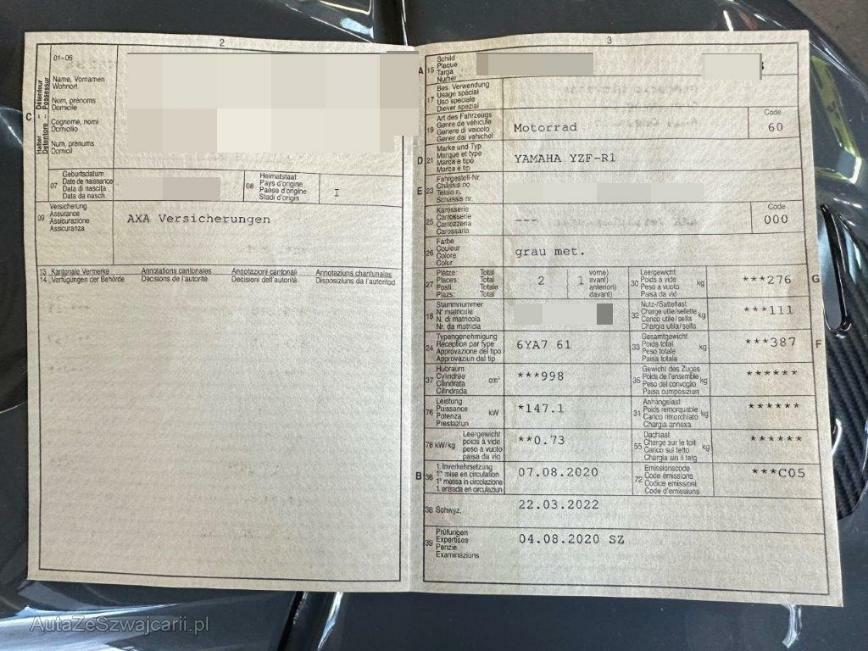 2
01-06
Name, Vornamen
Wohnort
Nom, prénoms
Domicile
Cognome, nomi
Domicilio
Num, prenums
Domicil
C
Halter Détenteur
Detentore - Possessur
07
Geburtsdatum
Date de naissance
Data di nascita
Data da nasch.
08
Heimatstaat
Pays d'origine
Paese d'origine
Stadi d'origin
I
09
Versicherung
Assurance
Assicurazione
Assicuranza
AXA Versicherungen
13 Kantonale Vermerke Annotations cantonales Annotazioni cantonali Annotaziuns chantunalas
14 Verfügungen der Behörde Décisions de l'autorité Decisioni dell'autorità Disposiziuns da l'autoritad
3
A 15
Schild
Plaque
Targa
Numer
17
Bes. Verwendung
Usage spécial
Uso speciale
Diever spezial
19
Art des Fahrzeugs
Genre de véhicule
Genere di veicolo
Gener dal vehichel
Motorrad
Code
60
D 21
Marke und Typ
Marque et type
Marca e tipo
Marca e tip
YAMAHA YZF-R1
E 23
Fahrgestell-Nr.
Châssis no
Telaio n.
Schassis nr.
25
Karosserie
Carrosserie
Carrozzeria
Carossaria
---
Code
000
26
Farbe
Couleur
Colore
Color
grau met.
27
Plätze: Total
Places: Total
Posti: Totale
Plazs: Total
2
1
vorne)
avant)
anteriori)
davant)
30
Leergewicht
Poids à vide
Peso a vuoto
Paisa da vid
kg
***276
G
18
Stammnummer
N° matricule
N. di matricola
Nr. da matricla
32
Nutz-/Sattellast
Charge utile/sellette
Carico utile/sella
Chargia utila/sella
kg
***111
24
Typengenehmigung
Réception par type
Approvazione del tipo
Approvaziun dal tip
6YA7 61
33
Gesamtgewicht
Poids total
Peso totale
Paisa totala
kg
***387
F
37
Hubraum
Cylindrée
Cilindrata
Cilindrada
cm³
***998
35
Gewicht des Zuges
Poids de l'ensemble
Peso del convoglio
Paisa cumposiziun
kg
******
76
Leistung
Puissance
Potenza
Prestaziun
kW
*147.1
31
Anhängelast
Poids remorquable
Carico rimorchiato
Chargia annexa
kg
******
78 kW/kg
Leergewicht
poids à vide
peso a vuoto
paisa da vid
**0.73
55
Dachlast
Charge sur le toit
Carico sul tetto
Chargia sin il tetg
kg
******
B 36
1. Inverkehrsetzung
1re mise en circulation
1a messa in circolazione
1. entrada en circulaziun
07.08.2020
72
Emissionscode
Code émissions
Codice emissioni
Code d'emissiuns
***C05
38 Schwyz,
22.03.2022
39
Prüfungen
Expertises
Perizie
Examinaziuns
04.08.2020 SZ
AutaZeSzwajcarii.pl